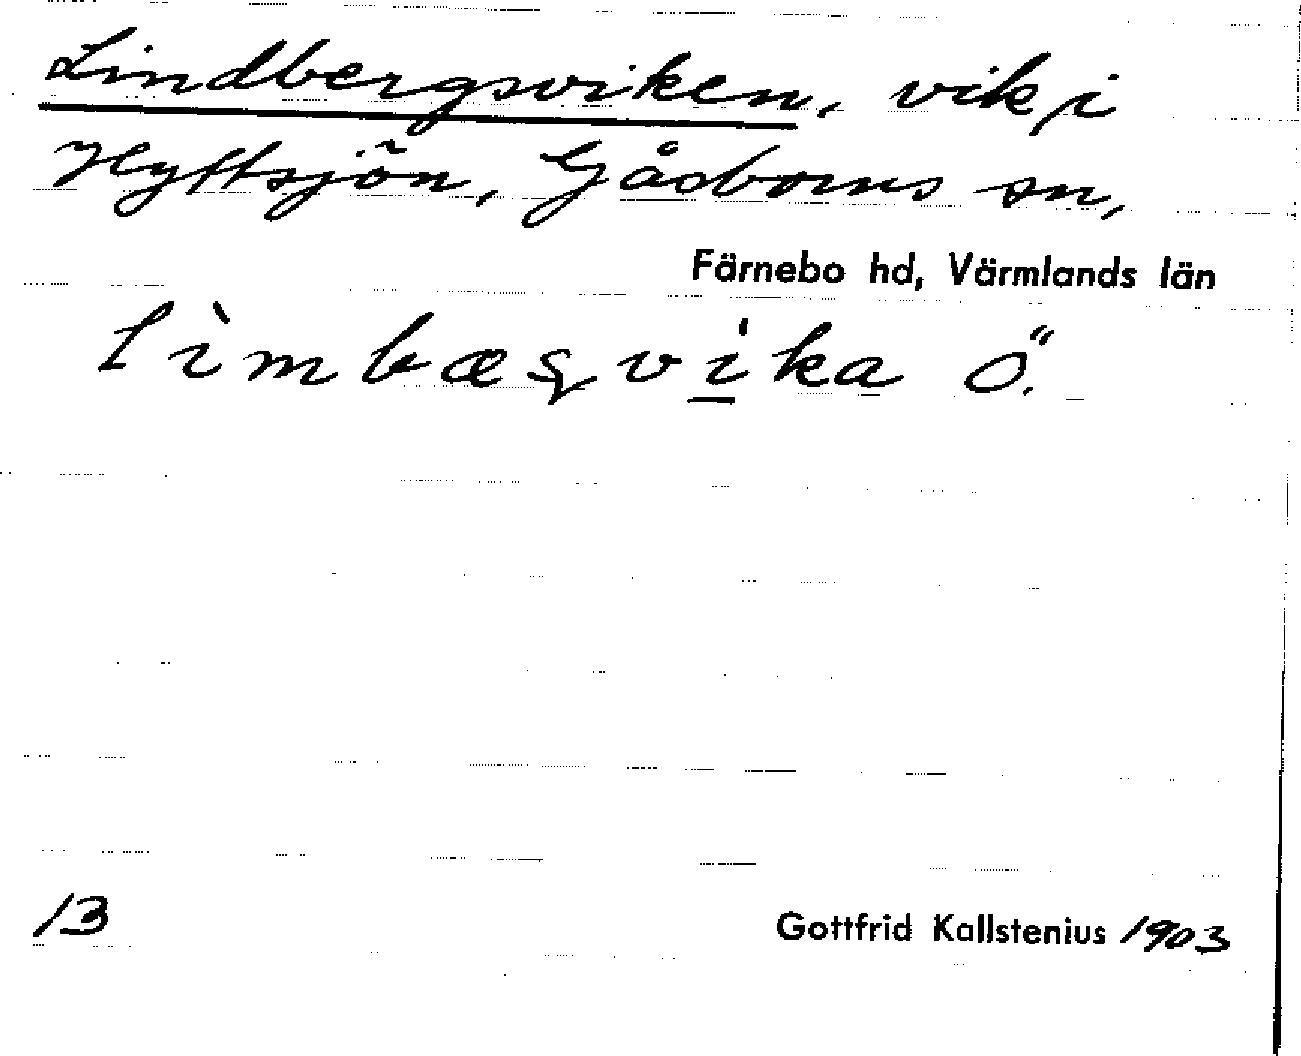 Lindbergsviken, vik i
Hyttsjön, Gåsborns sn,
Färnebo hd, Värmlands län
lìmbæqvi̲ka Ö.
13
Gottfrid Kallstenius 1903